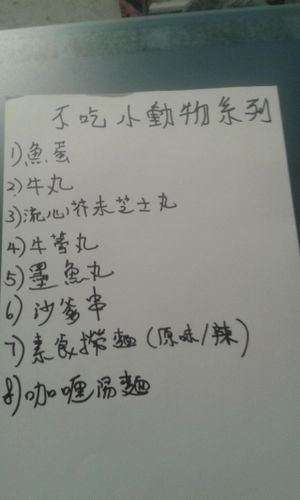 不吃小動物系列
1)魚蛋
2)牛丸
3)流心芥末芝士丸
4)牛筋丸
5)墨魚丸
6)沙爹串
7)素食撈麵(原味/辣)
8)咖喱湯麵